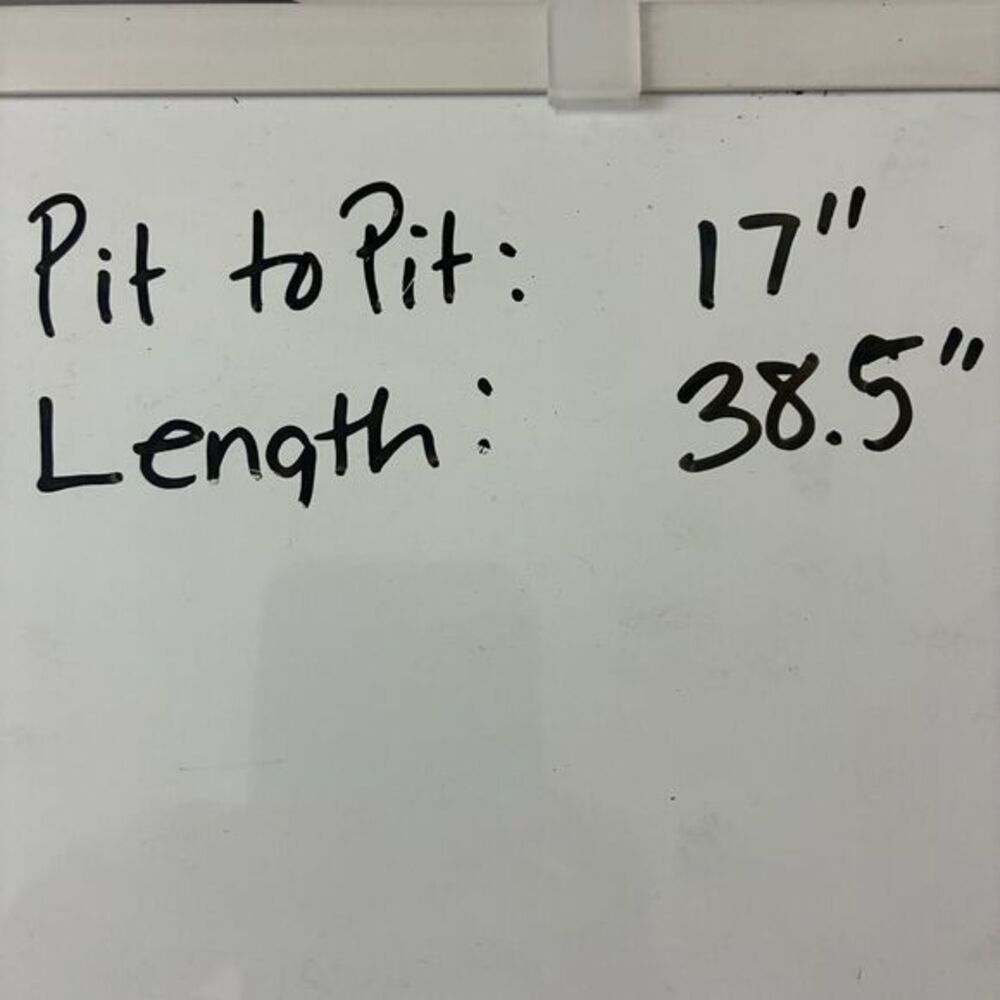 Pit to Pit: 17"
Length: 38.5"